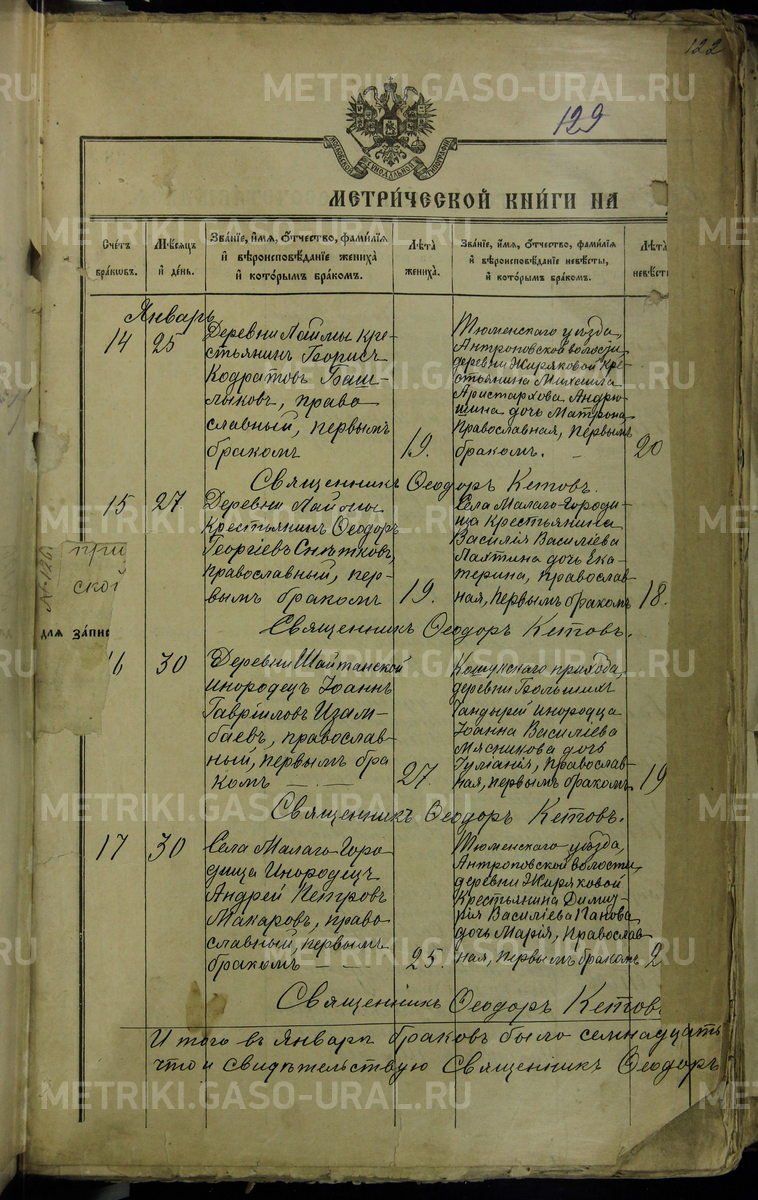 122
129
МОСКОВСКОЙ СУНОДАЛЬНОЙ ТИПОГРАФІИ
МЕТРИ́ЧЕСКОЙ КНИ́ГИ НА
Сче́тъ бра́кωвъ.
Мѣ́сяцъ и҆ де́нь.
Зва́нїе, и҆́мя, ѻ҆́тчество, фами́лїя
и҆ вѣроисповѣ́данїе жениха̀
и҆ кото́рымъ бра́комъ.
Лѣ́та жениха̀.
Зва́нїе, и҆́мя, ѻ҆́тчество, фами́лїя
и҆ вѣроисповѣ́данїе невѣ́сты,
и҆ кото́рымъ бра́комъ.
Лѣ́та невѣ́сты
Январь
14
25
Деревни Лаймы кре-
стьянинъ Борисъ
Кодратовъ Баш-
лыковъ, право
славный, первымъ
бракомъ
19.
Тюменскаго уѣзда,
Антроповской волости
деревни Жиряковой кре-
стьянина Михаила
Аристархова Андрю-
шина дочь Матрона
православная, первымъ
бракомъ.
20
Священникъ Ѳеодоръ Кетовъ.
15
27
Деревни Лаймы
крестьянинъ Ѳеодоръ
Георгіевъ Снѣтковъ,
православный, пер-
вымъ бракомъ
19.
Села Малаго-Городи-
ща крестьянина
Василія Василіева
Лахтина дочь Ека-
терина, православ-
ная, первымъ бракомъ
18.
при
ской
для запис
Священникъ Ѳеодоръ Кетовъ.
16
30
Деревни Шайтанской
инородецъ Іоаннъ
Гавріиловъ Изам-
баевъ, православ-
ный, первымъ бра
комъ
27.
Кошукскаго прихода,
деревни Большихъ
Тандырей инородца
Іоанна Василіева
Мясникова дочь
Іуліанія, православ-
ная, первымъ бракомъ
19
Священникъ Ѳеодоръ Кетовъ.
17
30
Села Малаго-Горо-
дища Инородецъ
Андрей Петровъ
Макаровъ, право
славный, первымъ
бракомъ
25.
Тюменскаго уѣзда,
Антроповской волости
деревни Жиряковой
крестьянина Димит-
рія Василіева Панова
дочь Марія, Православ-
ная, первымъ бракомъ
2
Священникъ Ѳеодоръ Кетовъ
Итого въ Январѣ браковъ было семнадцать
что и свидѣтельствую Священникъ Ѳеодоръ
METRIKI.GASO-URAL.RU